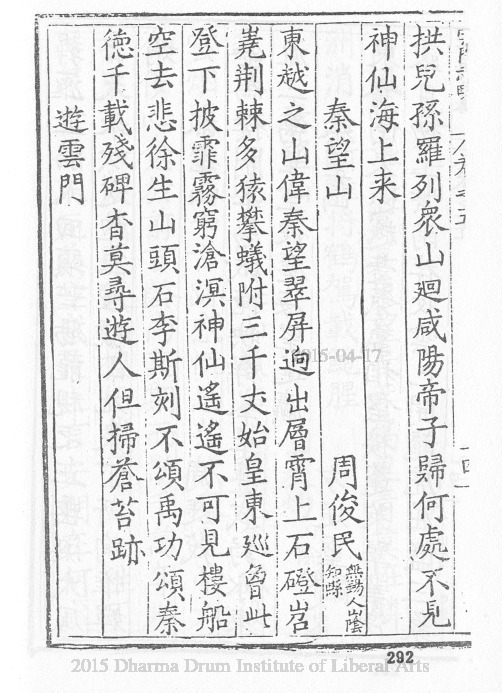 拱兒孫羅列衆山廻咸陽帝子歸何處不見
神仙海上来
秦望山 周俊民 無錫人山陰知縣
東越之山偉秦望翠屏逈出層霄上石磴岧
嶤荆棘多猿攀蟻附三千丈始皇東廵曾此
登下披霏霧窮滄溟神仙遙遙不可見樓船
空去悲徐生山頭石李斯刻不頌禹功頌秦
徳千載殘碑杳莫尋遊人但掃蒼苔跡
遊雲門
2015-04-17
292
2015 Dharma Drum Institute of Liberal Arts